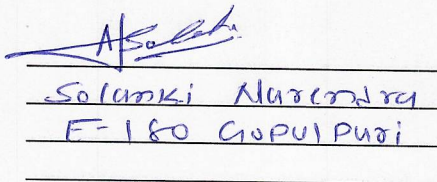 Solanki Narendra
E-180 Gopulpuri